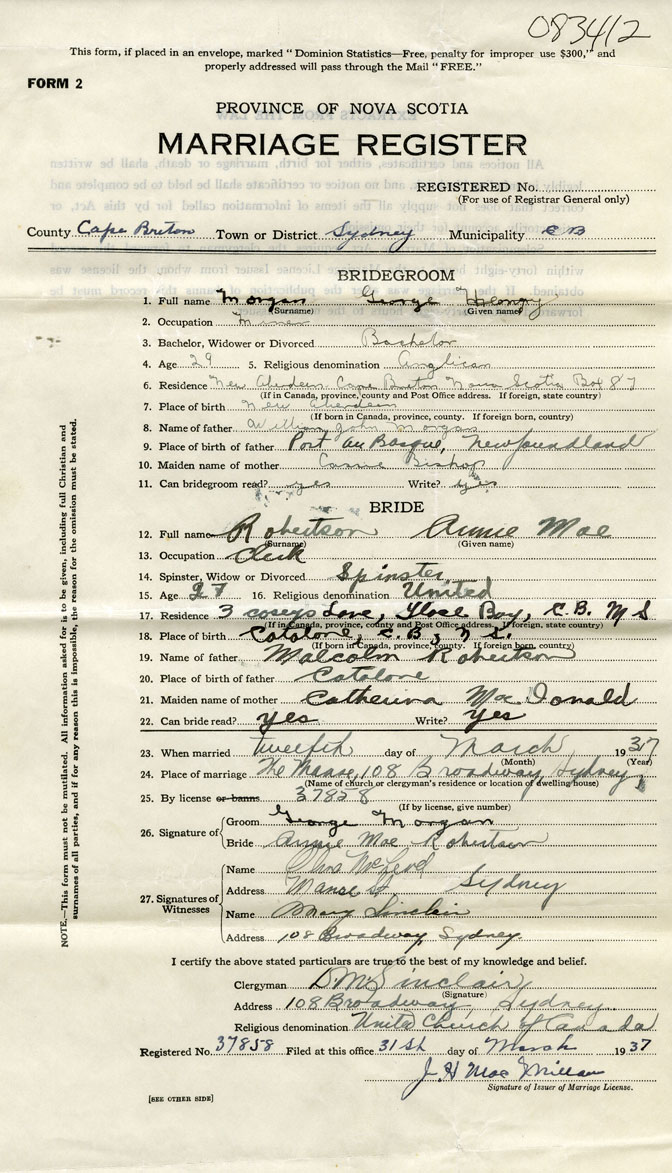 083412
This form, if placed in an envelope, marked "Dominion Statistics—Free, penalty for improper use $300," and
properly addressed will pass through the Mail "FREE."
FORM 2
PROVINCE OF NOVA SCOTIA
MARRIAGE REGISTER
REGISTERED No.
(For use of Registrar General only)
County Cape Breton Town or District Sydney Municipality C B
BRIDEGROOM
1. Full name Morgan George Henry
(Surname) (Given name)
2. Occupation Miner
3. Bachelor, Widower or Divorced Bachelor
4. Age 29 5. Religious denomination Anglican
6. Residence New Aberdeen Cape Breton Nova Scotia Box 87
(If in Canada, province, county and Post Office address. If foreign, state country)
7. Place of birth New Aberdeen
(If born in Canada, province, county. If foreign born, country)
8. Name of father William John Morgan
9. Place of birth of father Port au Basque, Newfoundland
10. Maiden name of mother Bishop
11. Can bridegroom read? yes Write? yes
BRIDE
12. Full name Robertson Annie Mae
(Surname) (Given name)
13. Occupation Clerk
14. Spinster, Widow or Divorced Spinster
15. Age 27 16. Religious denomination United
17. Residence 3 Lane, Glace Bay, C.B. N S
(If in Canada, province, county and Post Office address. If foreign, state country)
18. Place of birth Catalone, C.B, N S.
(If born in Canada, province, county. If foreign born, country)
19. Name of father Malcolm Robertson
20. Place of birth of father Catalone
21. Maiden name of mother Catherine Mac Donald
22. Can bride read? yes Write? Yes
23. When married twelfth day of March 1937
(Month) (Year)
24. Place of marriage The Manse, 108 Broadway, Sydney
(Name of church or clergyman's residence or location of dwelling house)
25. By license or banns 37858
(If by license, give number)
26. Signature of
Groom George Morgan
Bride Annie Mae Robertson
27. Signatures of Witnesses
Name McLeod
Address Manse St. Sydney
Name Mary Sinclair
Address 108 Broadway, Sydney.
I certify the above stated particulars are true to the best of my knowledge and belief.
Clergyman D.M. Sinclair
(Signature)
Address 108 Broadway, Sydney
Religious denomination United Church of Canada
Registered No. 37858 Filed at this office 31st day of March 1937
J. H Mac Millan
Signature of Issuer of Marriage License.
[SEE OTHER SIDE]
NOTE.—This form must not be mutilated. All information asked for is to be given, including full Christian and
surnames of all parties, and if for any reason this is impossible, the reason for the omission must be stated.